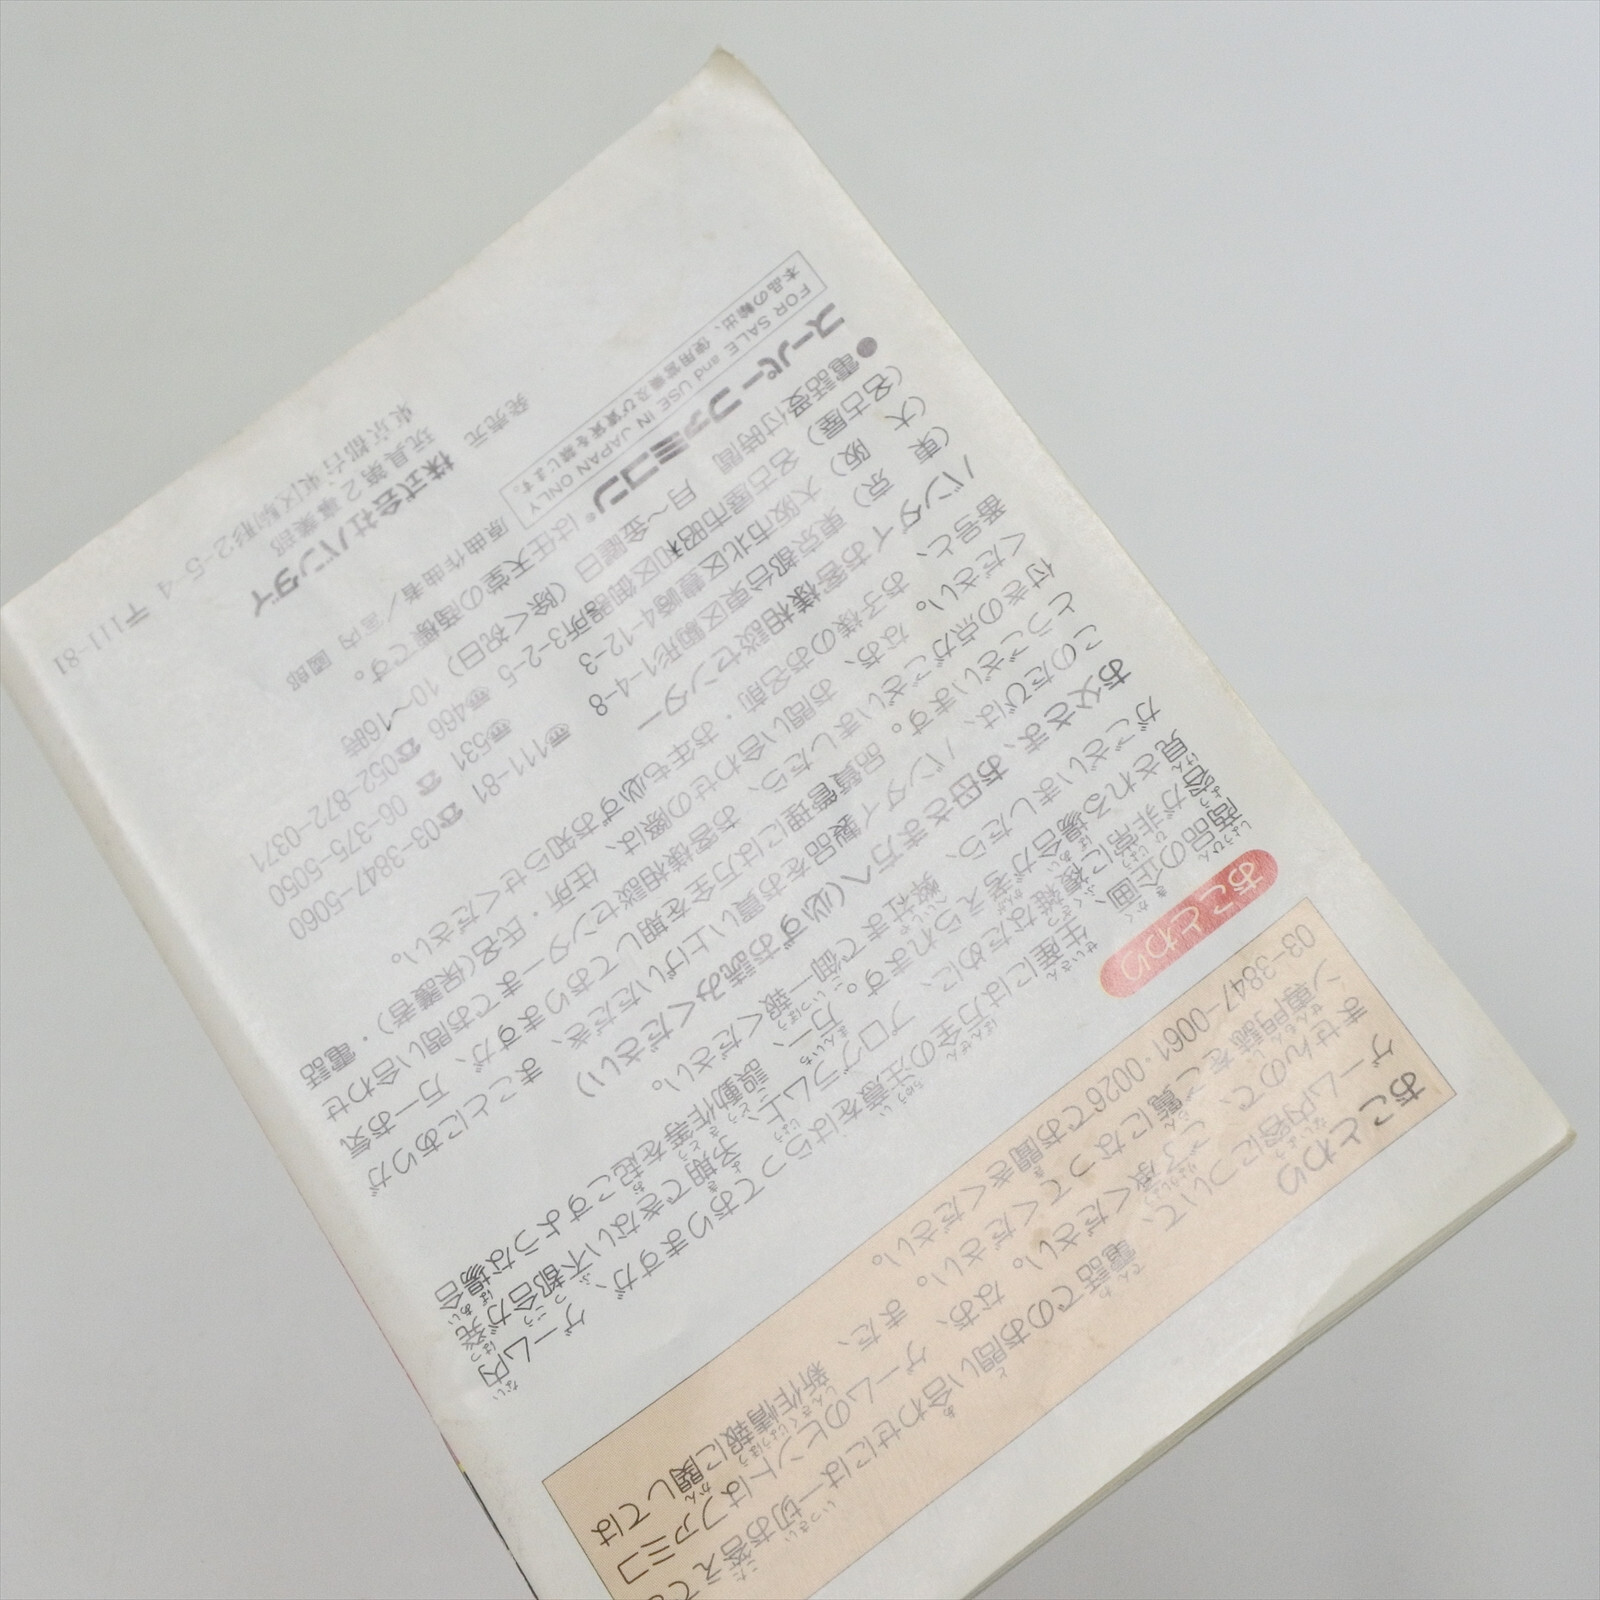 おことわり
ゲーム内容について、電話でのお問い合わせには一切お答えで
ませんので、ご了承ください。なお、ゲームのヒントはファミコ
ン専門誌をご覧になってください。また、新作情報に関しては
03-3847-0061・0026でお聞きください。
おことわり
商品の企画、生産には万全の注意をはらっておりますが、ゲーム内
容が非常に複雑なために、プログラム上、予期できない不都合が発
見される場合が考えられます。万一、誤動作等を起こすような場合
がございましたら、弊社まで御一報ください。
お父さま、お母さま方へ(必ずお読みください)
このたびは、バンダイ製品をお買い上げいただき、まことにありが
とうございます。品質管理には万全を期しておりますが、万一お気
付きの点がございましたら、お客様相談センターまでお問い合わせ
ください。なお、お問い合わせの際は、住所・氏名(保護者)・電話
番号と、お子様のお名前・お年も必ずお知らせください。
バンダイお客様相談センター
(東 京) 東京都台東区駒形1-4-8 〠111-81 ☎03-3847-5060
(大 阪) 大阪市北区豊崎4-12-3 〠531 ☎06-375-5050
(名古屋) 名古屋市昭和区御器所3-2-5 〠466 ☎052-872-0371
●電話受付時間 月〜金曜日(除く祝日) 10〜16時
スーパーファミコン®は任天堂の商標です。
FOR SALE and USE IN JAPAN ONLY
本品の輸出、使用営業及び賃貸を禁じます。
原曲作曲者/宮内 國郎
発売元 株式会社バンダイ
玩具第2事業部
東京都台東区駒形2-5-4 〒111-81